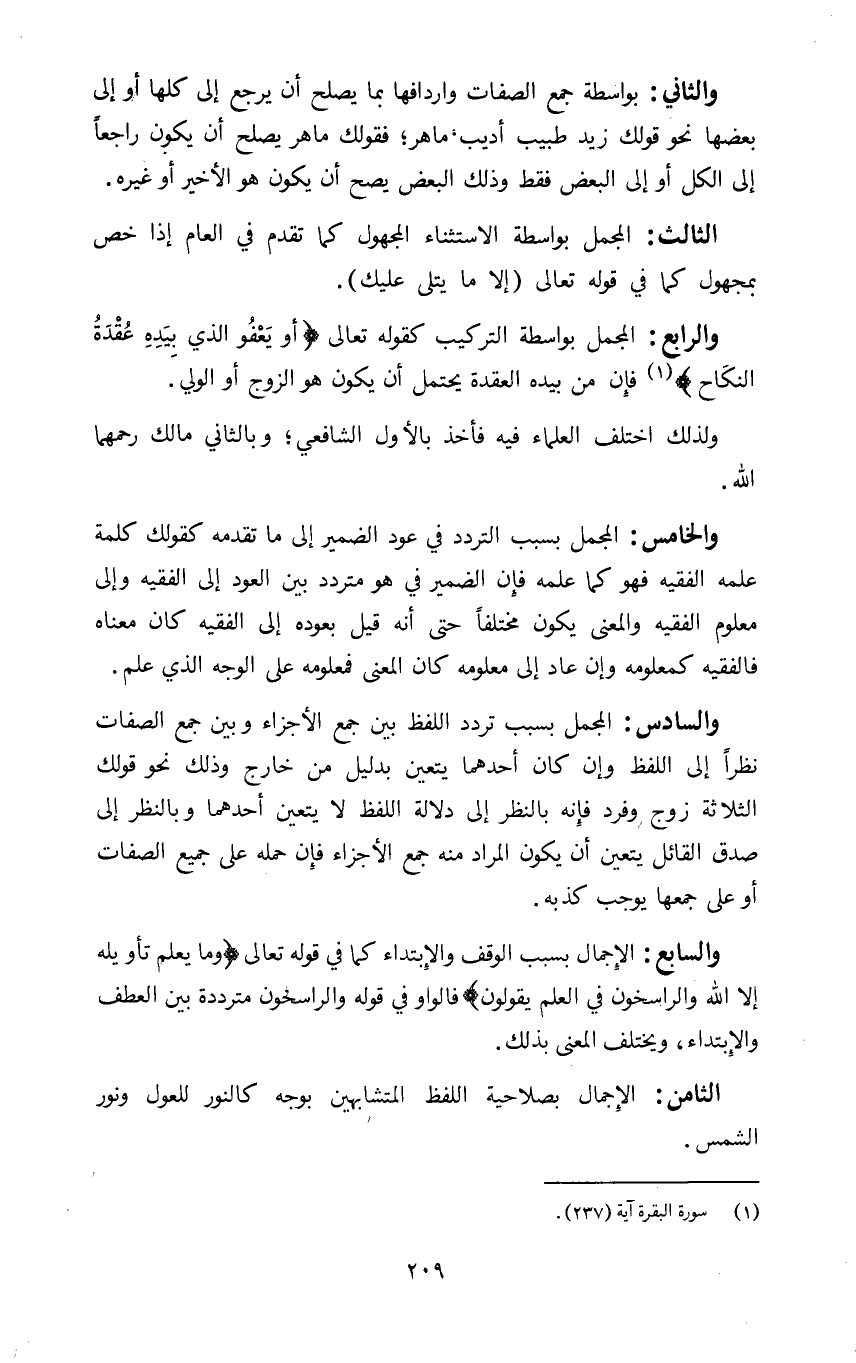 والثاني: بواسطة جمع الصفات واردافها بما يصلح أن يرجع إلى كلها أو إلى
بعضها نحو قولك زيد طبيب أديب ماهر؛ فقولك ماهر يصلح أن يكون راجعاً
إلى الكل أو إلى البعض فقط وذلك البعض يصح أن يكون هو الأخير أو غيره.
الثالث: المجمل بواسطة الاستثناء المجهول كما تقدم في العام إذا خص
بمجهول كما في قوله تعالى (إلا ما يتلى عليك).
والرابع: المجمل بواسطة التركيب كقوله تعالى ﴿أو يَعْفُو الذي بِيَدِهِ عُقْدَةُ
النكَاح﴾(١) فإن من بيده العقدة يحتمل أن يكون هو الزوج أو الولي.
ولذلك اختلف العلماء فيه فأخذ بالأول الشافعي؛ وبالثاني مالك رحمهما
الله.
والخامس: المجمل بسبب التردد في عود الضمير إلى ما تقدمه كقولك كلمة
علمه الفقيه فهو كما علمه فإن الضمير في هو متردد بين العود إلى الفقيه وإلى
معلوم الفقيه والمعنى يكون مختلفاً حتى أنه قيل بعوده إلى الفقيه كان معناه
فالفقيه كمعلومه وإن عاد إلى معلومه كان المعنى فمعلومه على الوجه الذي علم.
والسادس: المجمل بسبب تردد اللفظ بين جمع الأجزاء وبين جمع الصفات
نظراً إلى اللفظ وإن كان أحدهما يتعين بدليل من خارج وذلك نحو قولك
الثلاثة زوج وفرد فإنه بالنظر إلى دلالة اللفظ لا يتعين أحدهما وبالنظر إلى
صدق القائل يتعين أن يكون المراد منه جمع الأجزاء فإن حمله على جميع الصفات
أو على جمعها يوجب كذبه.
والسابع: الإجمال بسبب الوقف والإبتداء كما في قوله تعالى ﴿وما يعلم تأويله
إلا الله والراسخون في العلم يقولون﴾ فالواو في قوله والراسخون مترددة بين العطف
والإبتداء، ويختلف المعنى بذلك.
الثامن: الإجمال بصلاحية اللفظ المتشابهين بوجه كالنور للعول ونور
الشمس.
(١) سورة البقرة آية (٢٣٧).
٢٠٩